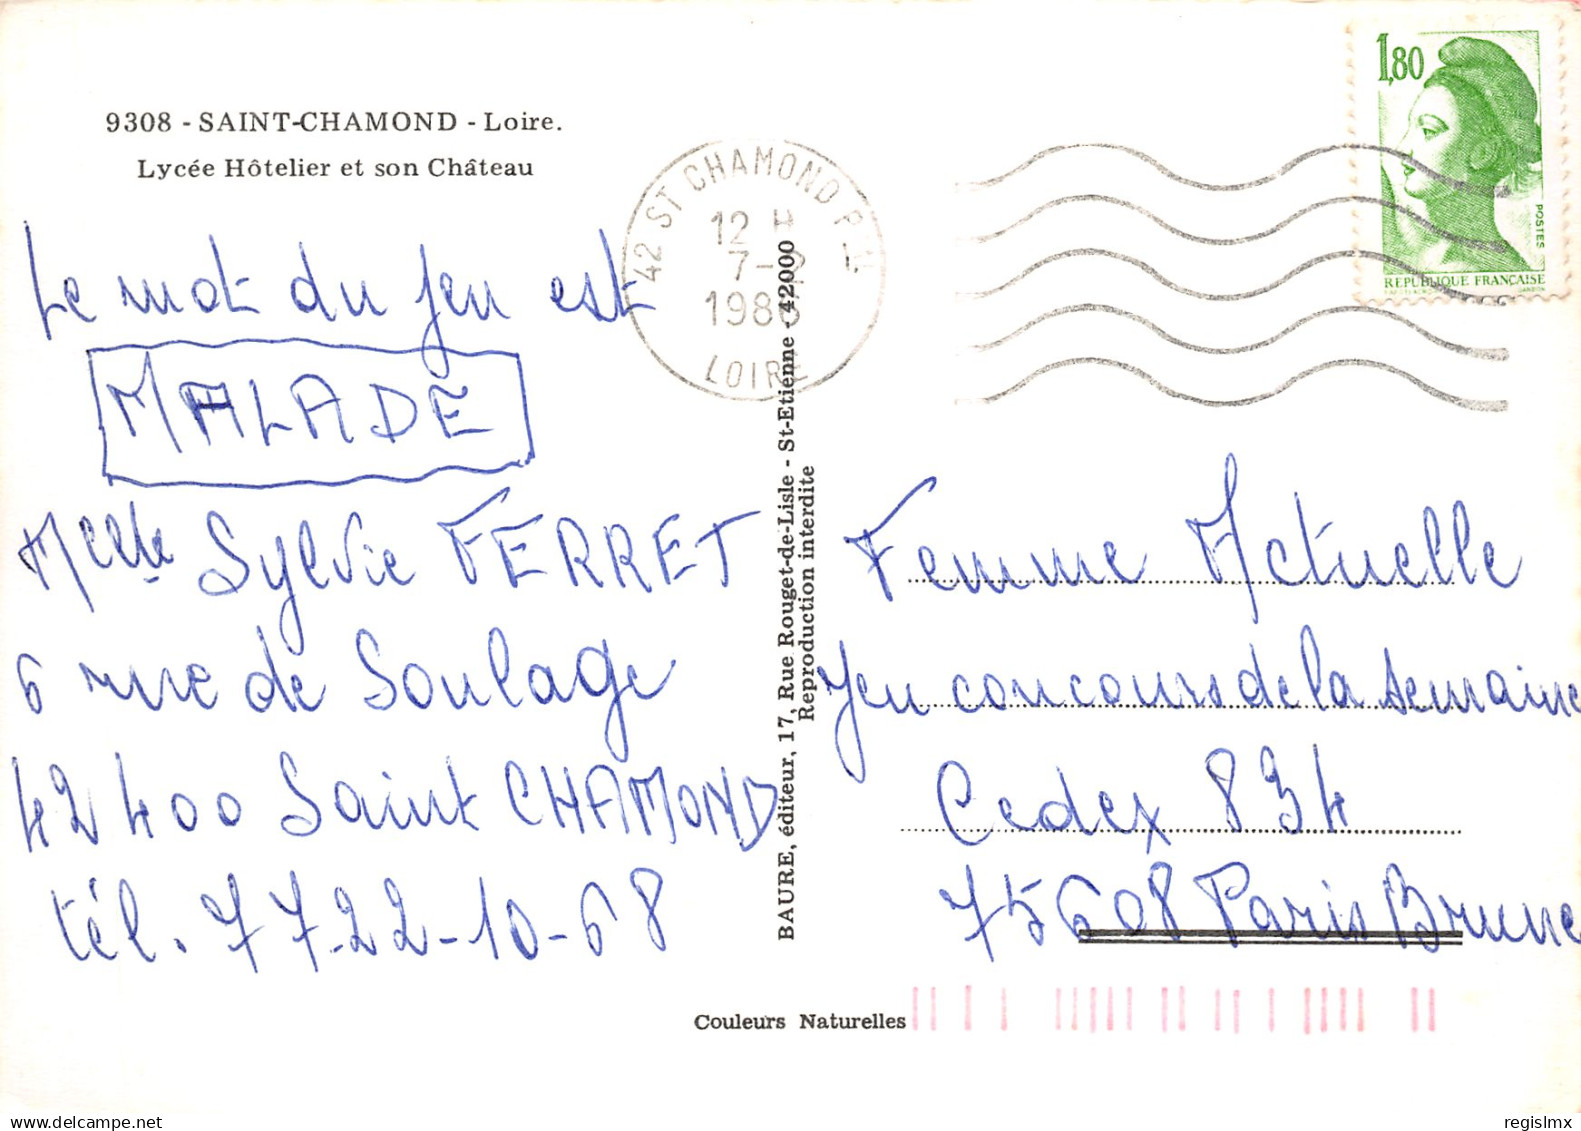 9308 - SAINT-CHAMOND - Loire.
Lycée Hôtelier et son Château
Le mot du jeu est
MALADE
Melle Sylvie FERRET
6 rue de Soulage
42400 Saint CHAMOND
tél. 77-22-10-68
42 ST CHAMOND P
12 H
7-2
1986
LOIRE
BAURE, éditeur, 17, Rue Rouget-de-Lisle - St-Etienne - 42000
Reproduction interdite
1,80
POSTES
REPUBLIQUE FRANÇAISE
Femme Actuelle
Jeu concours de la semaine
Cedex 834
75608 Paris Brune
Couleurs Naturelles
regislmx